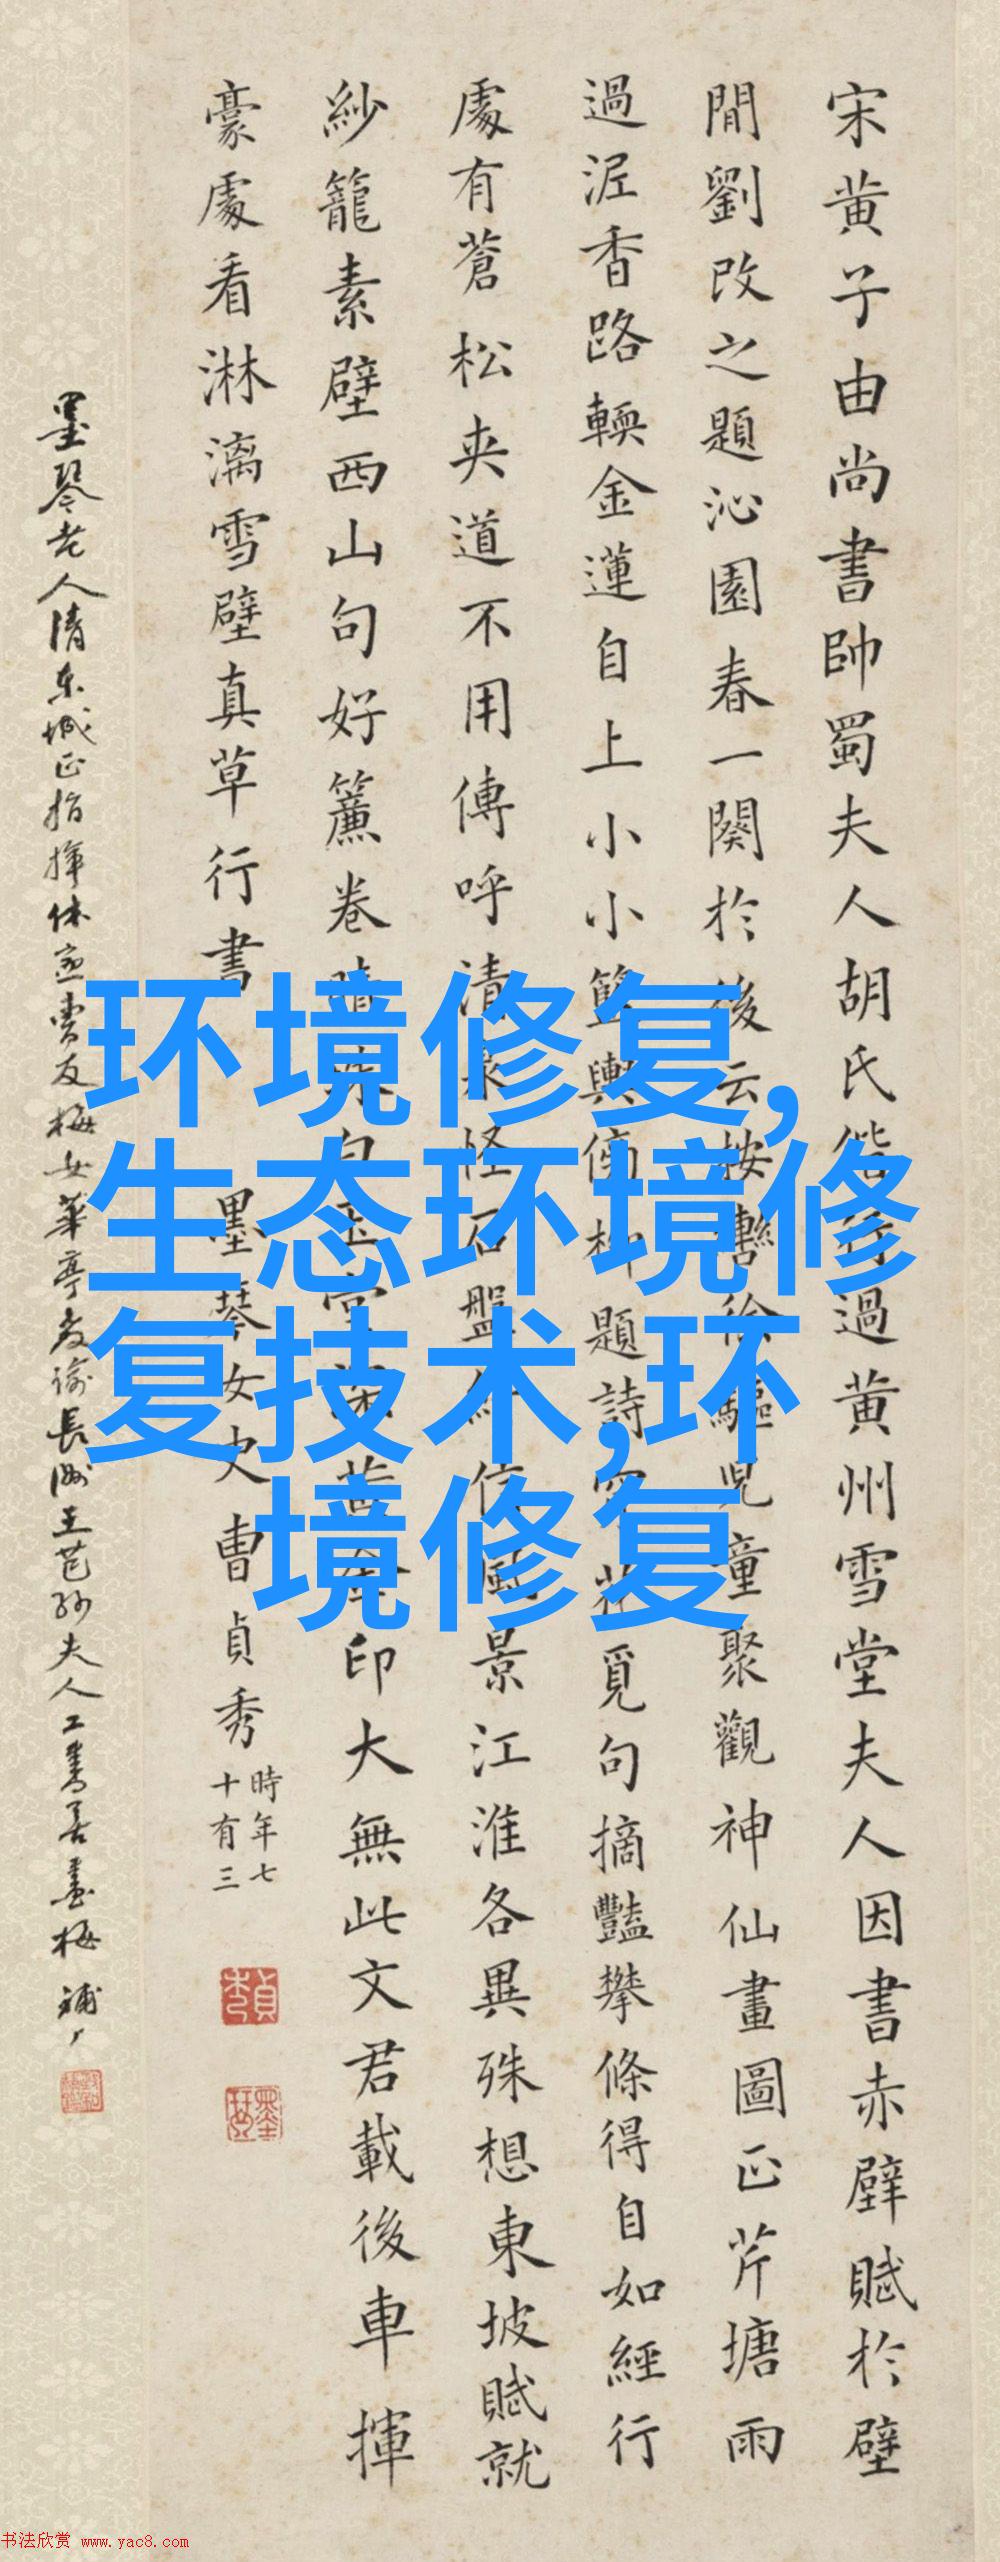 宋黄子由尚書帥蜀夫人胡氏偕行過黄州雪堂夫人因書赤壁賦於壁
間劉改之題沁園春一闋於後云按轡徐驅兒童聚觀神仙畫圖正芹塘雨
過泥香路輭金蓮自上小小籃輿傍柳題詩穿花覓句摘豔攀條得自如經行
處有蒼松夾道不用傳呼清泉怪石盤紆信風景江淮各異殊想東坡賦就
紗籠素壁西山句好簾卷晴珠白玉堂深黃金印大無此文君載後車揮
豪處看淋漓雪壁真草行書
墨琴女史曹貞秀
時年七
十有三
墨琴老人清東城正指揮休寧曹友梅女華亭教諭長洲王芑孙夫人工書善畫梅
环境修复,
生态环境修
复技术,环
境修复
书法欣赏 www.yac8.com